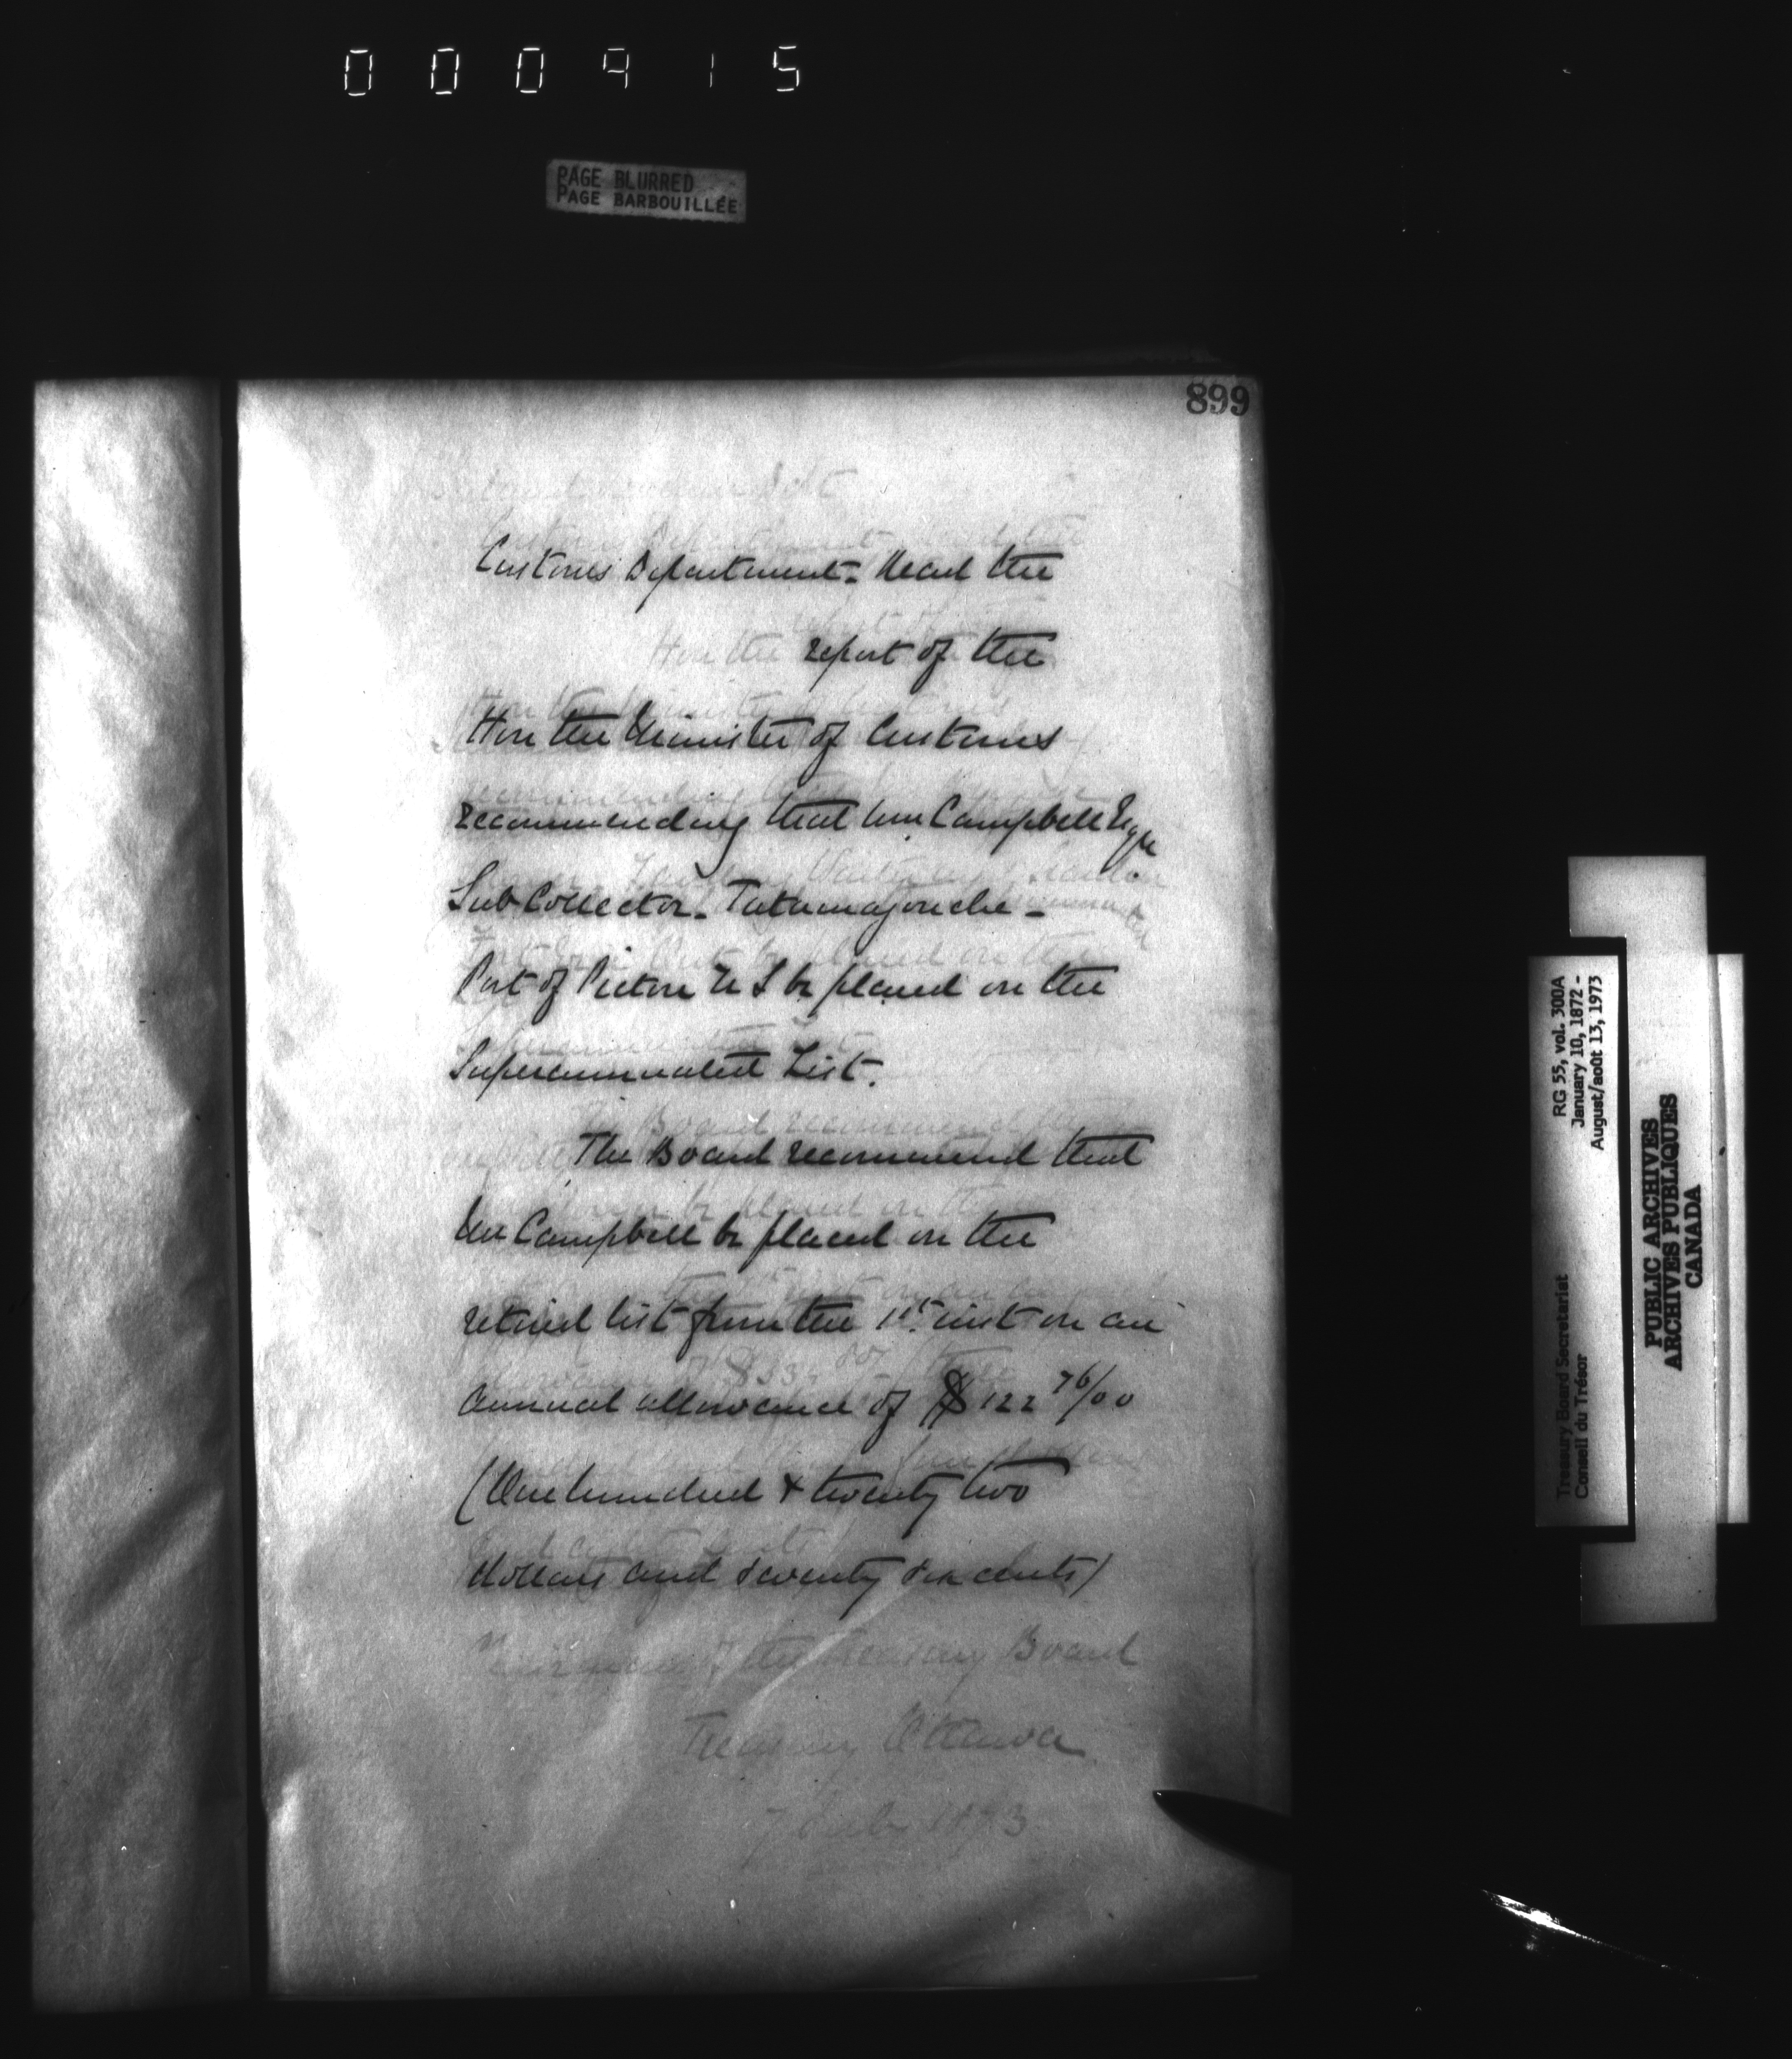 000915
PAGE BLURRED
PAGE BARBOUILLÉE
899
Customs Department - Read the
report of the
Hon the Minister of Customs
recommending that Wm Campbell Esqr
Sub Collector - Tatamagouche -
Port of Pictou N S be placed on the
Superannuated List.
The Board recommend that
Mr Campbell be placed on the
retired list from the 1st. inst on an
annual allowance of $122 76/00
(One hundred & twenty two
dollars and seventy six cents)
of the Treasury Board
Treasury Ottawa
7 July 1873
RG 55, vol. 300A
January 10, 1872 -
August/août 13, 1973
Treasury Board Secretariat
Conseil du Trésor
PUBLIC ARCHIVES
ARCHIVES PUBLIQUES
CANADA